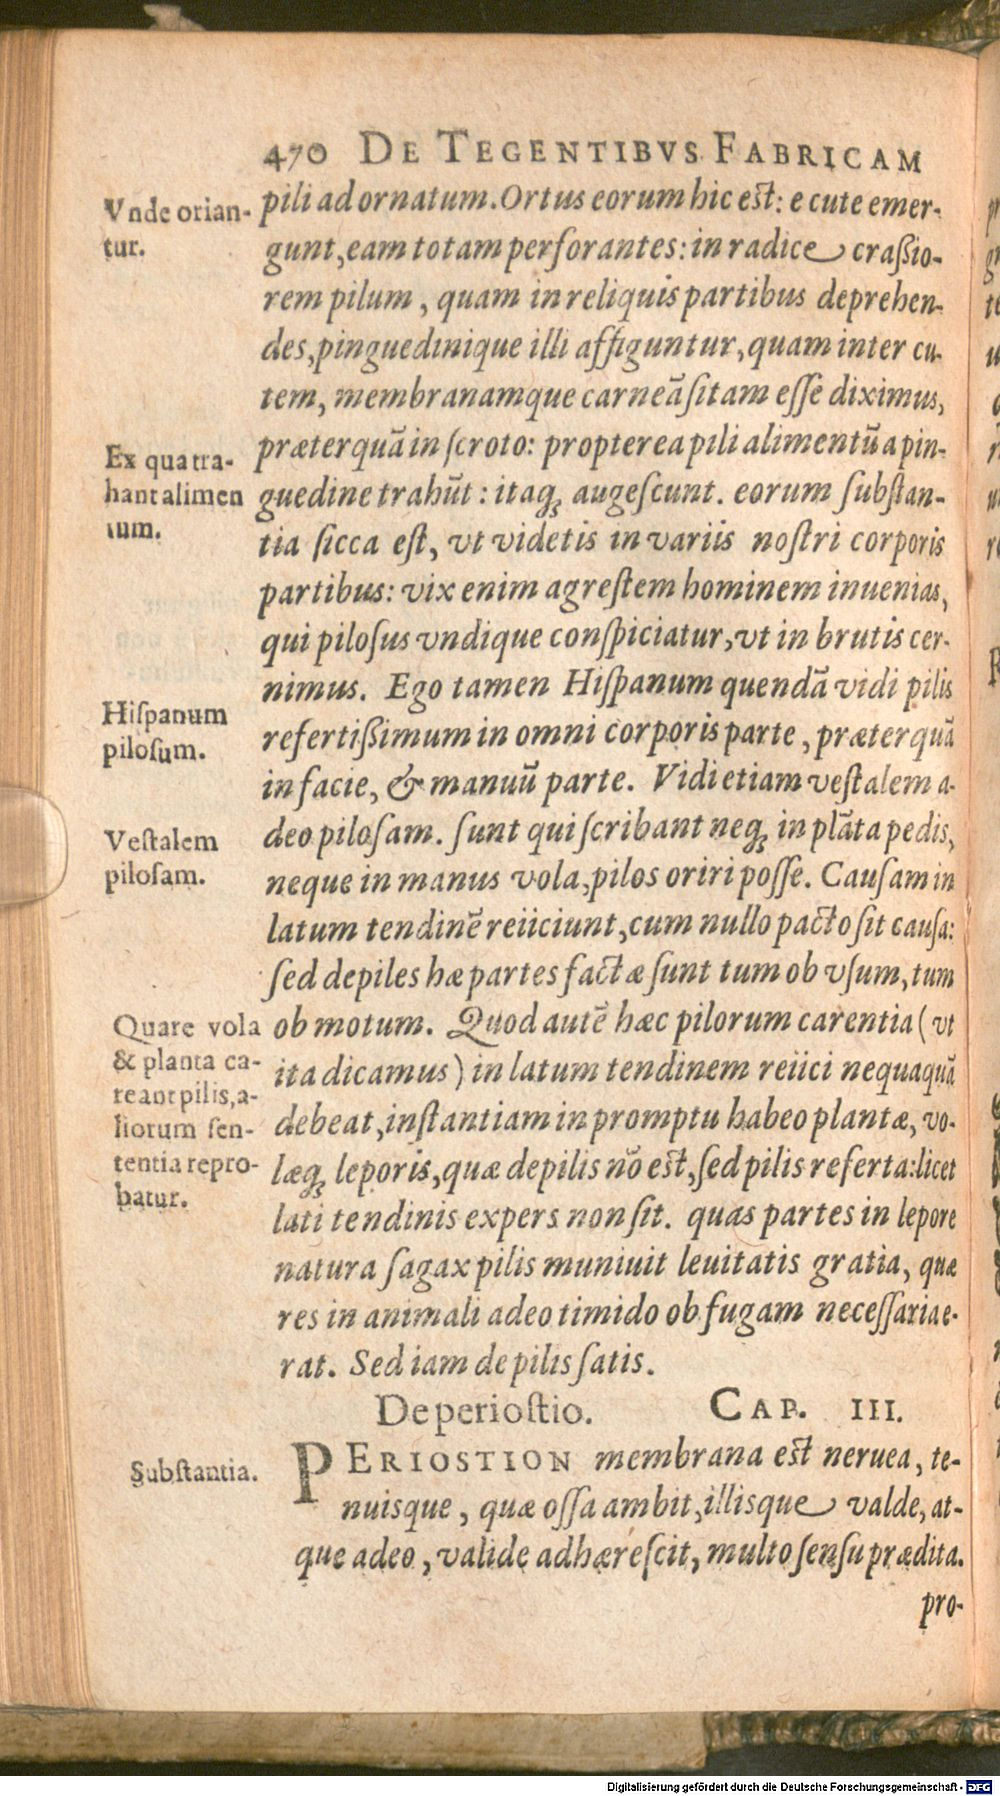 470 DE TEGENTIBVS FABRICAM
Vnde orian-
tur.
pili ad ornatum. Ortus eorum hic est: e cute emer-
gunt, eam totam perforantes: in radice craßio-
rem pilum, quam in reliquis partibus deprehen-
des, pinguedinique illi affiguntur, quam inter cu-
tem, membranamque carneā ſitam eſſe diximus,
Ex qua tra-
hant alimen
tum.
præterquā in ſcroto: propterea pili alimentū a pin-
guedine trahūt: itaq; augeſcunt. eorum ſubſtan-
tia ſicca eſt, vt videtis in variis noſtri corporis
partibus: vix enim agreſtem hominem inuenias,
qui piloſus vndique conſpiciatur, vt in brutis cer-
nimus. Ego tamen Hiſpanum quendā vidi pilis
Hiſpanum
piloſum.
refertißimum in omni corporis parte, præterquā
in facie, & manuū parte. Vidi etiam veſtalem a-
Veſtalem
piloſam.
deo piloſam. ſunt qui ſcribant neq; in plāta pedis,
neque in manus vola, pilos oriri poſſe. Cauſam in
latum tendinē reiiciunt, cum nullo pacto ſit cauſa:
ſed depiles hæ partes factæ ſunt tum ob vſum, tum
Quare vola
& planta ca-
reant pilis, a-
liorum ſen-
tentia repro-
batur.
ob motum. Quod autē hæc pilorum carentia (vt
ita dicamus) in latum tendinem reiici nequaquā
debeat, inſtantiam in promptu habeo plantæ, vo-
læq; leporis, quæ depilis nō est, ſed pilis referta: licet
lati tendinis expers non ſit. quas partes in lepore
natura ſagax pilis muniuit leuitatis gratia, quæ
res in animali adeo timido ob fugam neceſſaria e-
rat. Sed iam de pilis ſatis.
De perioſtio. CAP. III.
Subſtantia.
PERIOSTION membrana est neruea, te-
nuisque, quæ oſſa ambit, illisque valde, at-
que adeo, valide adhæreſcit, multo ſenſu prædita.
pro-
Digitalisierung gefördert durch die Deutsche Forschungsgemeinschaft - DFG